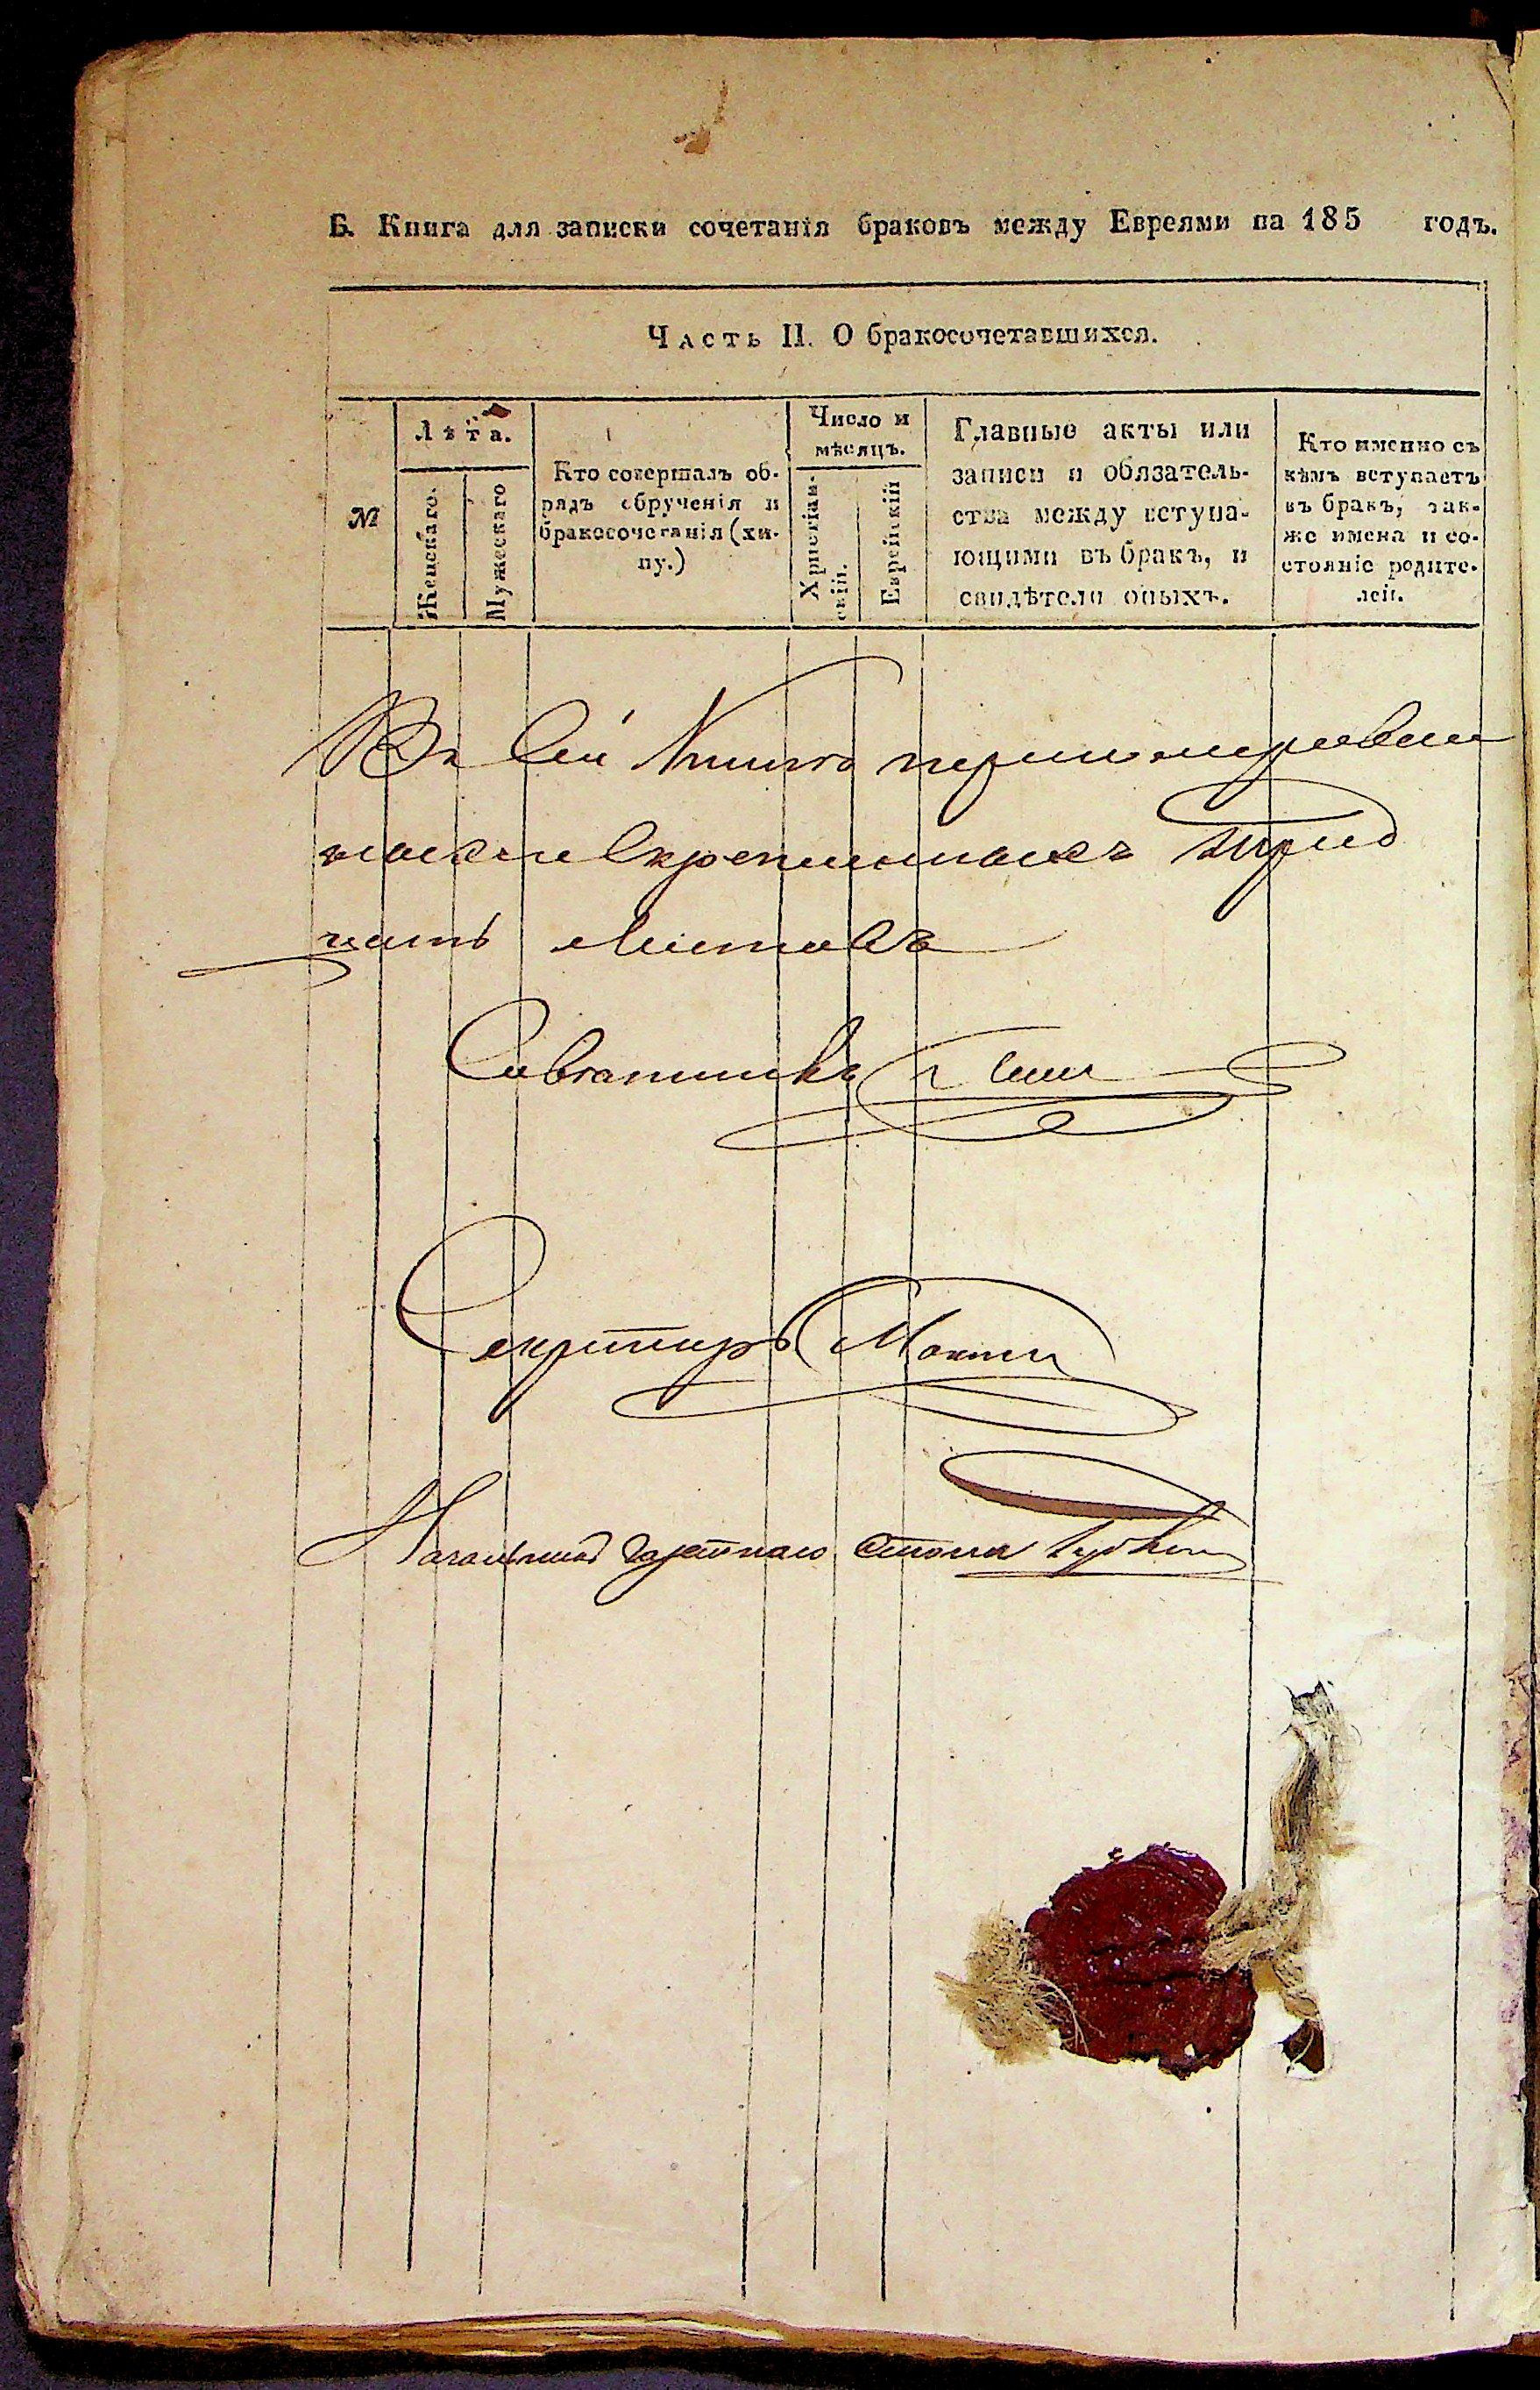 Б. Книга для записки сочетанія браковъ между Евреями на 185 годъ.
Часть II. О бракосочетавшихся.
№
Лѣта.
Женскаго.
Мужескаго
Кто совершалъ об-
рядъ обрученія и
бракосочетанія (хи-
пу.)
Число и
мѣсяцъ.
Христіан-
скій.
Еврейскій
Главные акты или
записи и обязатель-
ства между вступа-
ющими въ бракъ, и
свидѣтели оныхъ.
Кто именно съ
кѣмъ вступаетъ
въ бракъ, так-
же имена и со-
стояніе родите-
лей.
Въ сей Книге перенумерован
ныхъ и скрепленныхъ трид
цать листовъ
Советникъ
Секретарь
Начальник Газетнаго Стола